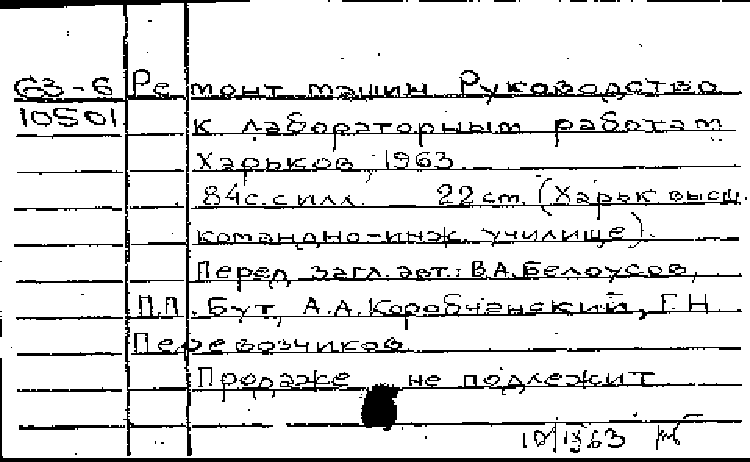 63-6 Ремонт машин Руководство
10501 к лабораторным работам
Харьков, 1963.
84с.с илл. 22 см. (Харьк высш.
командно-инж. училище).
Перед загл. авт.: В.А.Белоусов,
П.П. Бут, А.А. Коробчанский, Г.Н
Перевозчиков
Продаже не подлежит
10/IX63